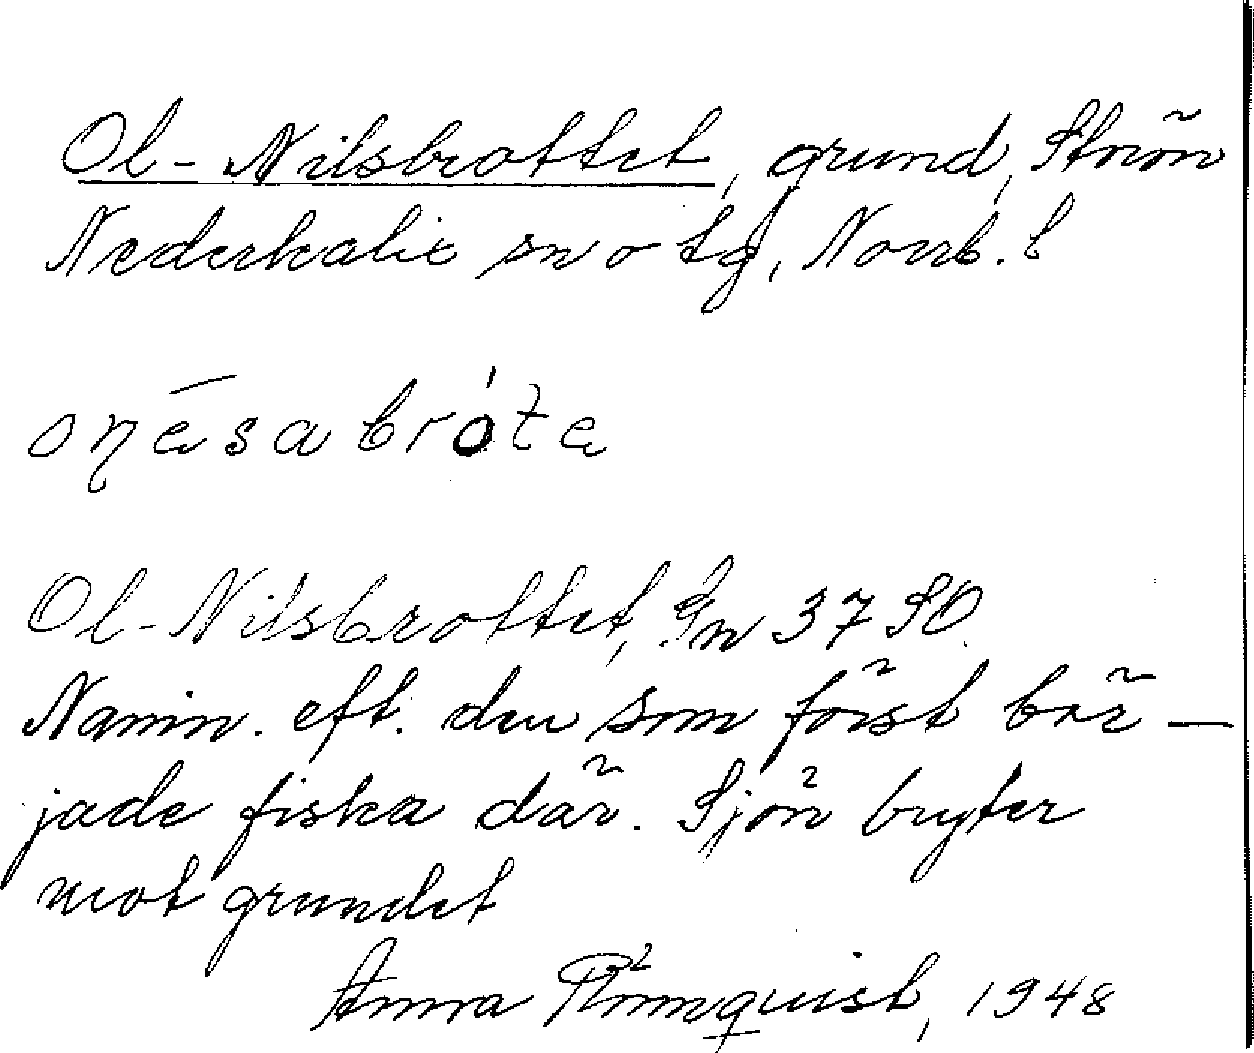 Ol-Nilsbrottet, grund, Strön
Nederkalix sn o tg, Norrb. l
Ol-Nilsbrottet, Gn 37 SO.
Namn. eft. den som först bör-
jade fiska där. Sjön bryter
mot grundet
Anna Rönnquist, 1948